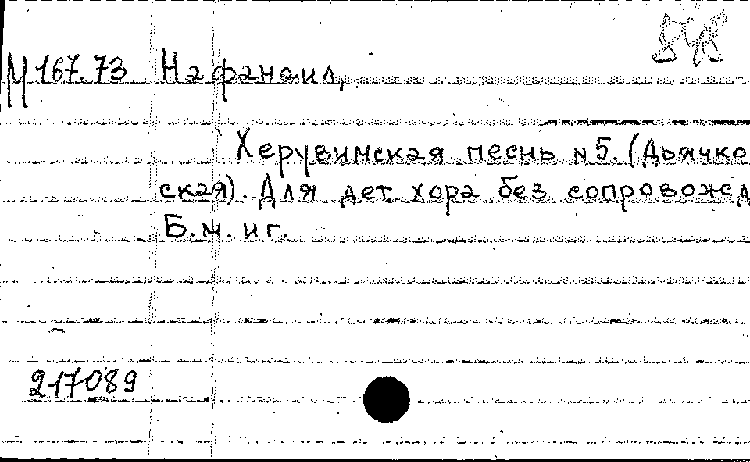 М 167.73 Нафанаил,
Херувимская песнь №5. (Дьячко
ская). Для дет. хора без сопровожд
Б.м. иг.
217089